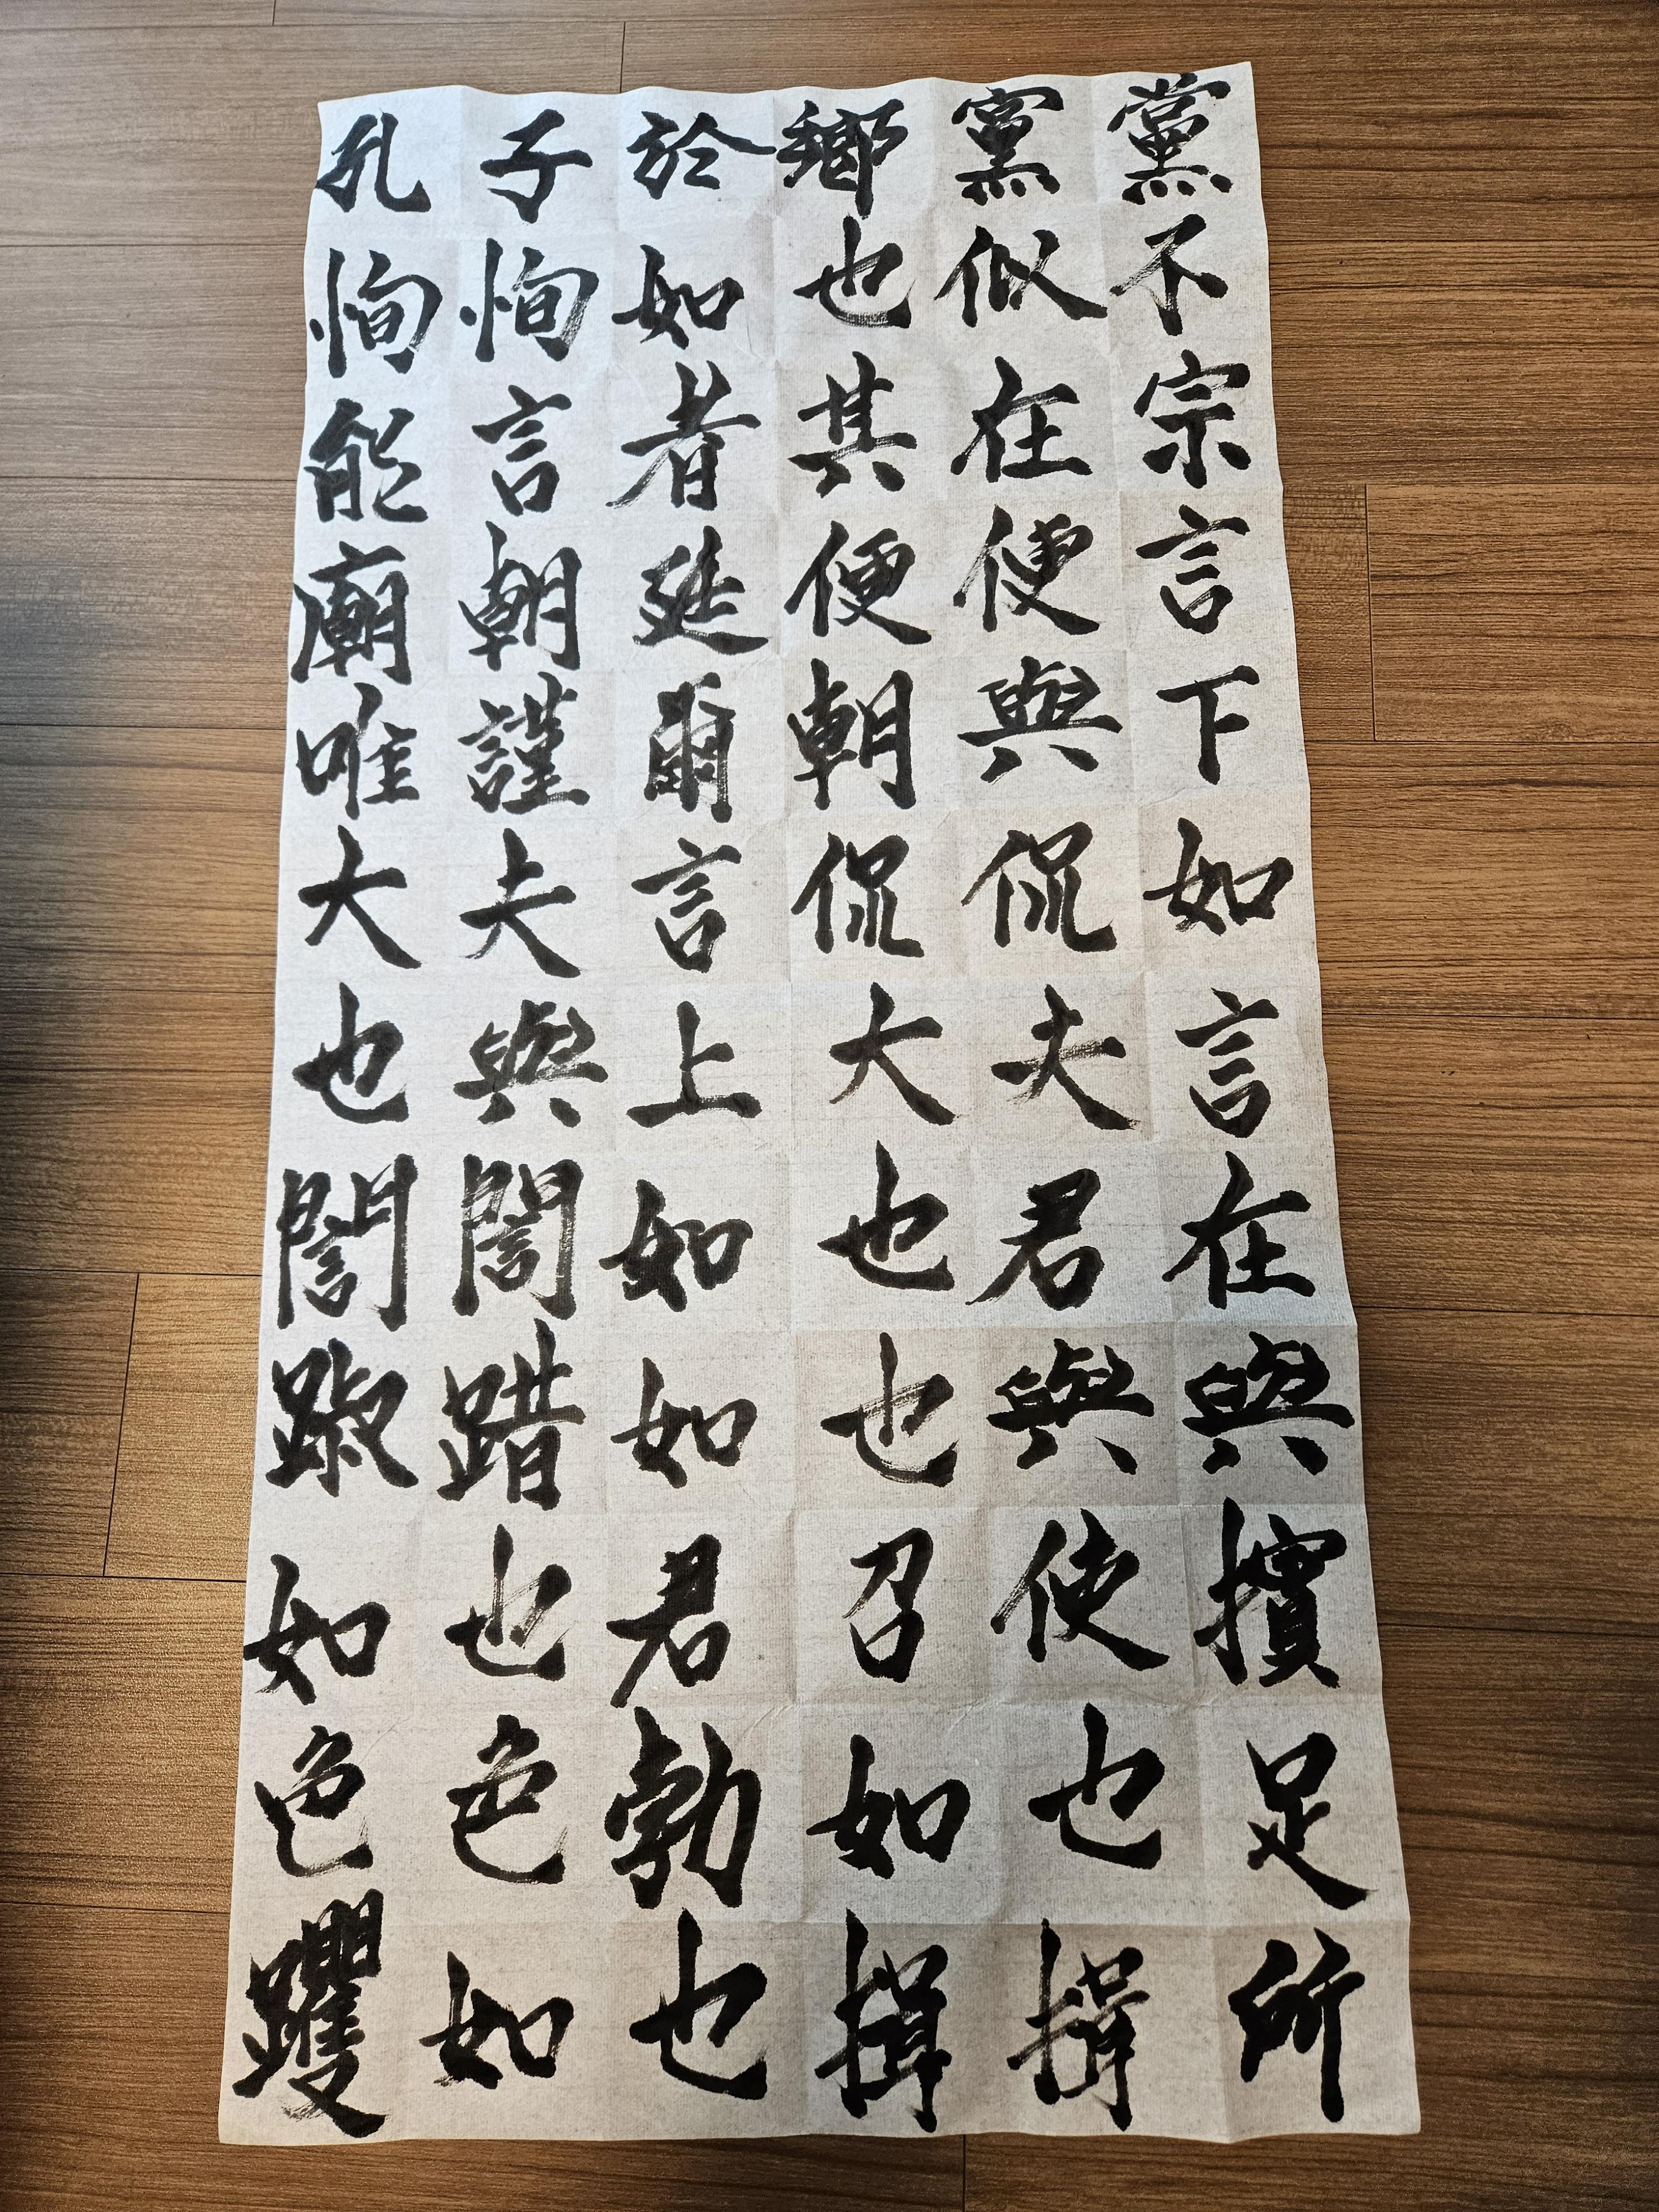 孔子於鄉黨黨
恂恂如也似不
能言者其在宗
廟朝廷便便言
唯謹爾朝與下
大夫言侃侃如
也與上大夫言
誾誾如也君在
踧踖如也與與
如也君召使擯
色色勃如也足
躩如也揖揖所